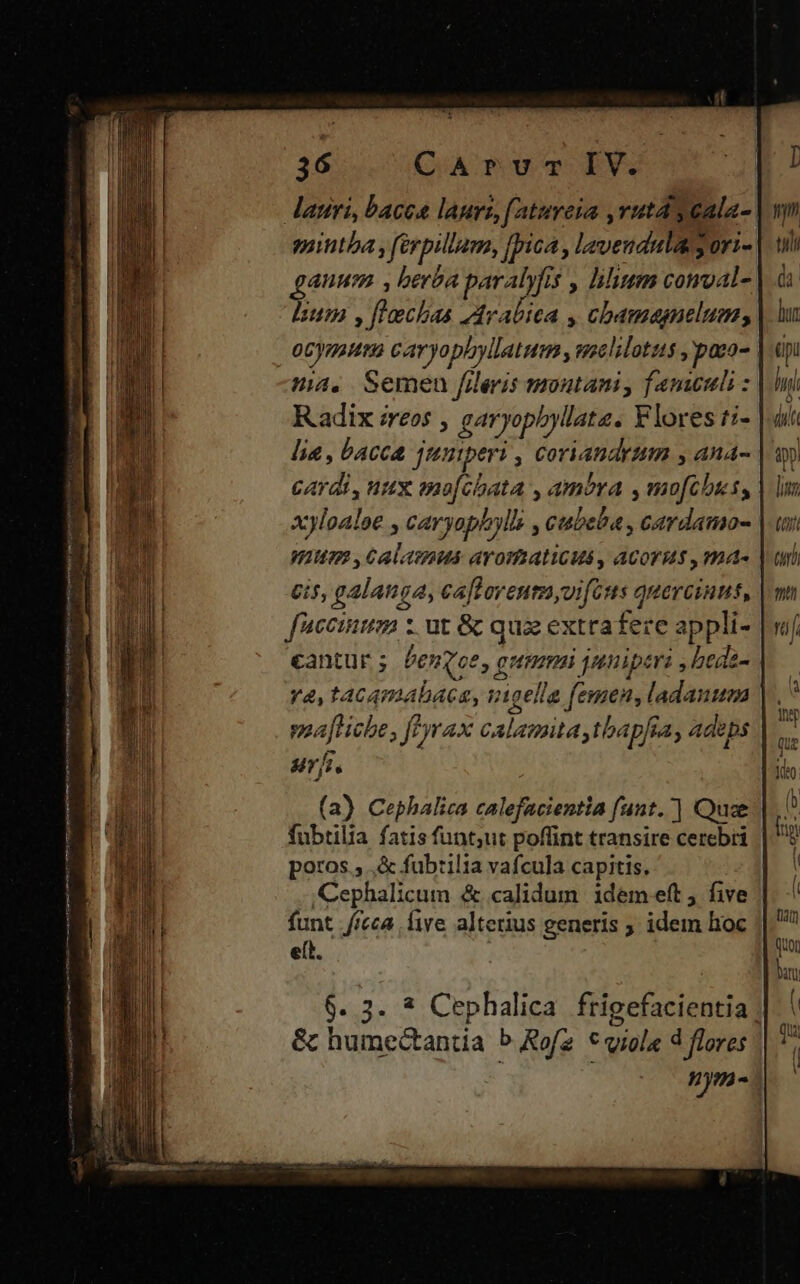 36 CAPUT IV.
lauri, baccæ lauri, ſatureia, ruta, cala-
mintha, ſerpillum, ſpica, lavendula, ori-
ganum, herba paralyſis, lilium conval-
lium, ſtœchas Arabica, chamæmelum,
ocymum caryophyllatum, melilotus, pæo-
nia. Semen ſileris montani, fæniculi:
Radix ireos, garyophyllatæ. Flores ti-
liæ, baccæ juniperi, coriandrum, ana-
cardi, nux moſchata, ambra, moſchus,
xyloaloe, caryophylli, cubebæ, cardamo-
mum, calamus aromaticus, acorus, ma-
cis, galanga, caſtoreum, viſcus quercinus,
ſuccinum: ut & quæ extra fere appli-
cantur; benzoe, gummi juniperi, hede-
ræ, tacamahaca, nigellæ ſemen, ladanum
maſtiche, ſtyrax calamita, thapſia, adeps
urſi.
(a) Cephalica calefacientia ſunt.] Quæ
ſubtilia ſatis ſunt, ut poſſint transire cerebri
poros, & ſubtilia vaſcula capitis.
Cephalicum & calidum idem eſt, ſive
ſunt ſicca ſive alterius generis, idem hoc
eſt.
§. 3. a Cephalica frigefacientia
& humectantia b Roſæ c violæ d flores
nym-